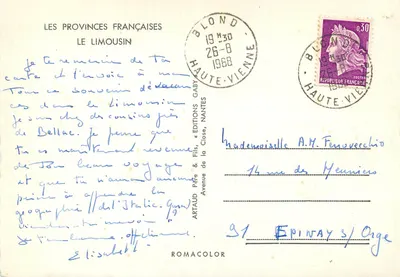 LES PROVINCES FRANÇAISES
LE LIMOUSIN
je te remercie de ta
carte et t'envoie à mon
Tour ce souvenir de vacances
dans le Limousin
je suis chez des cousins près
de Bellac. je pense que
tu es maintenant revenue
de ton beau voyage
et que tu n'auras aucune
peine à apprendre la
géographie de l'Italie. Quand
Elisabeth
ARTAUD Père & Fils, ÉDITIONS GABY
Avenue de la Close, NANTES
ROMACOLOR
BLOND
19H30
26-8
1968
HAUTE-VIENNE
0,30
BLOND
HAUTE-VIENNE
Mademoiselle A.M. Fenovecchio
14 rue des Meuniers
91 EPINAY S/ Orge